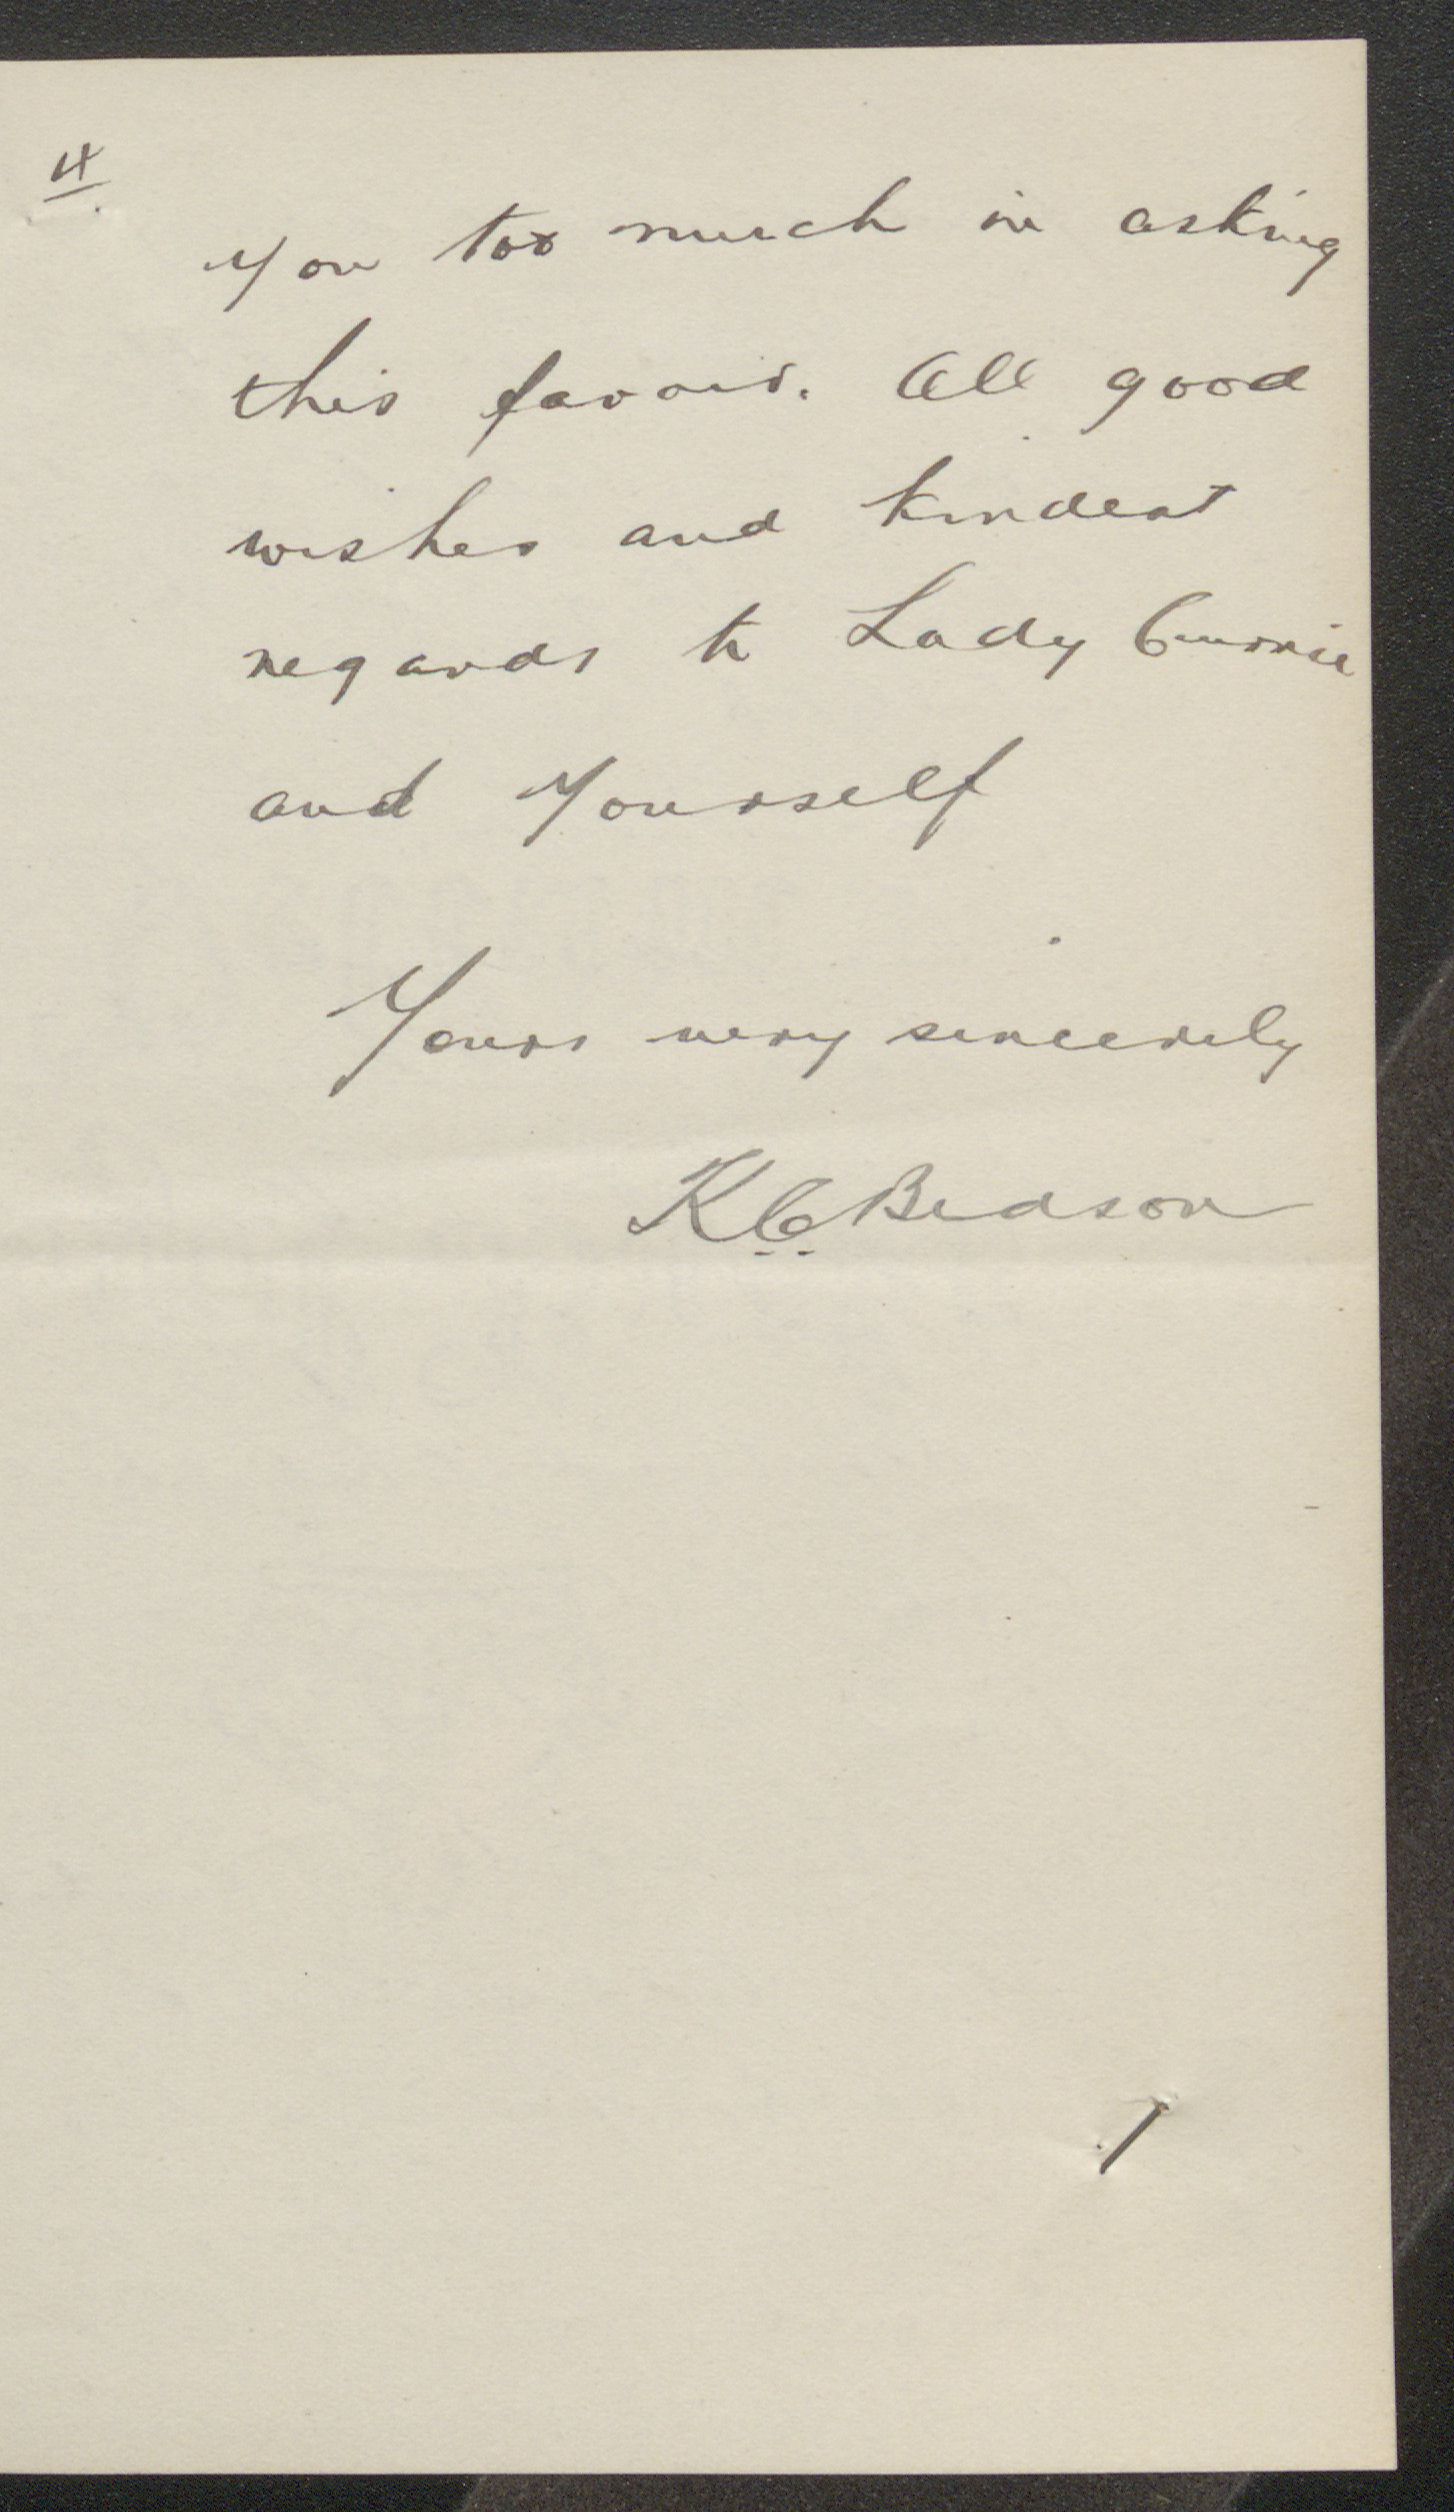 4
You too much in asking
this favour. All good
wishes and kindest
regards to Lady Currie
and Yourself
Yours very sincerely
K C Bedson